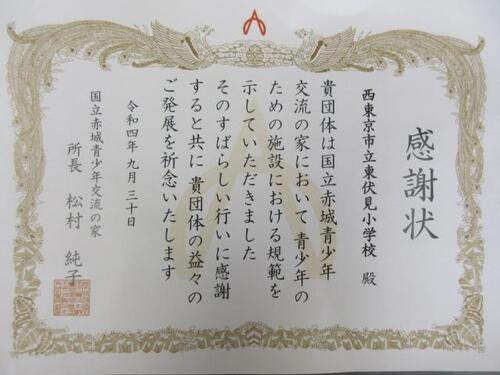 感謝状
西東京市立東伏見小学校 殿
貴団体は国立赤城青少年
交流の家において 青少年の
ための施設における規範を
示していただきました
そのすばらしい行いに感謝
すると共に 貴団体の益々の
ご発展を祈念いたします
令和四年九月三十日
国立赤城青少年交流の家
所長 松村 純子